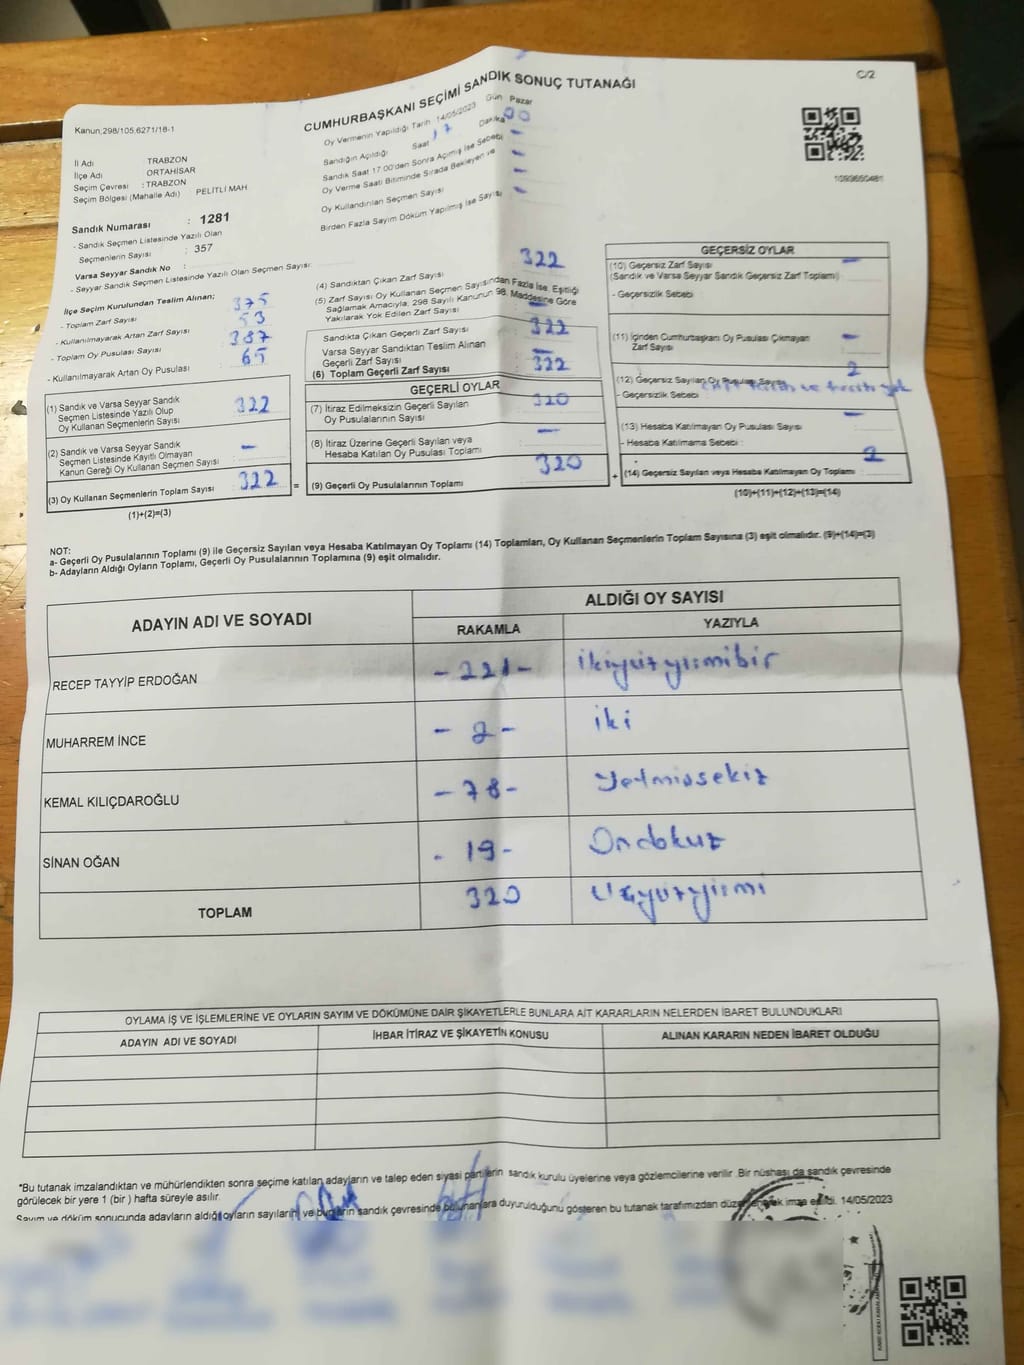 C/2
CUMHURBAŞKANI SEÇİMİ SANDIK SONUÇ TUTANAĞI
Kanun,298/105.6271/18-1
Oy Vermenin Yapıldığı Tarih : 14/05/2023 Gün Pazar
Sandığın Açıldığı Saat 17 Dakika 00
Sandık Saat 17:00'den Sonra Açımış İse Sebebi -
Oy Verme Saati Bitiminde Sırada Bekleyen ve -
Oy Kullandırılan Seçmen Sayısı -
Birden Fazla Sayım Döküm Yapılmış İse Sayısı -
1093660481
İl Adı TRABZON
İlçe Adı ORTAHİSAR
Seçim Çevresi : TRABZON
Seçim Bölgesi (Mahalle Adı) PELİTLİ MAH
Sandık Numarası : 1281
- Sandık Seçmen Listesinde Yazılı Olan
Seçmenlerin Sayısı : 357
Varsa Seyyar Sandık No :
- Seyyar Sandık Seçmen Listesinde Yazılı Olan Seçmen Sayısı:
İlçe Seçim Kurulundan Teslim Alınan;
- Toplam Zarf Sayısı 375
- Kullanılmayarak Artan Zarf Sayısı 53
- Toplam Oy Pusulası Sayısı 387
- Kullanılmayarak Artan Oy Pusulası 65
(1) Sandık ve Varsa Seyyar Sandık
Seçmen Listesinde Yazılı Olup
Oy Kullanan Seçmenlerin Sayısı 322
(2) Sandık ve Varsa Seyyar Sandık
Seçmen Listesinde Kayıtlı Olmayan
Kanun Gereği Oy Kullanan Seçmen Sayısı -
(3) Oy Kullanan Seçmenlerin Toplam Sayısı 322 =
(1)+(2)=(3)
(4) Sandıktan Çıkan Zarf Sayısı 322
(5) Zarf Sayısı Oy Kullanan Seçmen Sayısından Fazla İse, Eşitliği
Sağlamak Amacıyla; 298 Sayılı Kanunun 98. Maddesine Göre
Yakılarak Yok Edilen Zarf Sayısı -
Sandıkta Çıkan Geçerli Zarf Sayısı 322
Varsa Seyyar Sandıktan Teslim Alınan
Geçerli Zarf Sayısı -
(6) Toplam Geçerli Zarf Sayısı 322
GEÇERLİ OYLAR
(7) İtiraz Edilmeksizin Geçerli Sayılan
Oy Pusulalarının Sayısı 320
(8) İtiraz Üzerine Geçerli Sayılan veya
Hesaba Katılan Oy Pusulası Toplamı -
(9) Geçerli Oy Pusulalarının Toplamı 320 +
GEÇERSİZ OYLAR
(10) Geçersiz Zarf Sayısı -
(Sandık ve Varsa Seyyar Sandık Geçersiz Zarf Toplamı)
- Geçersizlik Sebebi
(11) İçinden Cumhurbaşkanı Oy Pusulası Çıkmayan
Zarf Sayısı -
(12) Geçersiz Sayılan Oy Pusulası Sayısı 2
- Geçersizlik Sebebi
(13) Hesaba Katılmayan Oy Pusulası Sayısı -
- Hesaba Katılmama Sebebi :
(14) Geçersiz Sayılan veya Hesaba Katılmayan Oy Toplamı 2
(10)+(11)+(12)+(13)=(14)
NOT:
a- Geçerli Oy Pusulalarının Toplamı (9) ile Geçersiz Sayılan veya Hesaba Katılmayan Oy Toplamı (14) Toplamları, Oy Kullanan Seçmenlerin Toplam Sayısına (3) eşit olmalıdır. (9)+(14)=(3)
b- Adayların Aldığı Oyların Toplamı, Geçerli Oy Pusulalarının Toplamına (9) eşit olmalıdır.
ADAYIN ADI VE SOYADI ALDIĞI OY SAYISI
RAKAMLA YAZIYLA
RECEP TAYYİP ERDOĞAN - 221 - ikiyüzyirmibir
MUHARREM İNCE - 2 - iki
KEMAL KILIÇDAROĞLU - 78 - Yetmişsekiz
SİNAN OĞAN - 19 - Ondokuz
TOPLAM 320 Üçyüzyirmi
OYLAMA İŞ VE İŞLEMLERİNE VE OYLARIN SAYIM VE DÖKÜMÜNE DAİR ŞİKAYETLERLE BUNLARA AİT KARARLARIN NELERDEN İBARET BULUNDUKLARI
ADAYIN ADI VE SOYADI İHBAR İTİRAZ VE ŞİKAYETİN KONUSU ALINAN KARARIN NEDEN İBARET OLDUĞU
*Bu tutanak imzalandıktan ve mühürlendikten sonra seçime katılan adayların ve talep eden siyasi partilerin sandık kurulu üyelerine veya gözlemcilerine verilir. Bir nüshası da sandık çevresinde
görülecek bir yere 1 (bir ) hafta süreyle asılır.
Sayım ve döküm sonucunda adayların aldığı oyların sayılarını ve bunların sandık çevresinde bulunanlara duyurulduğunu gösteren bu tutanak tarafımızdan düzenlenerek imza edildi. 14/05/2023